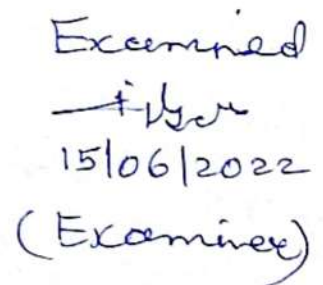 Examined
15/06/2022
(Examiner)